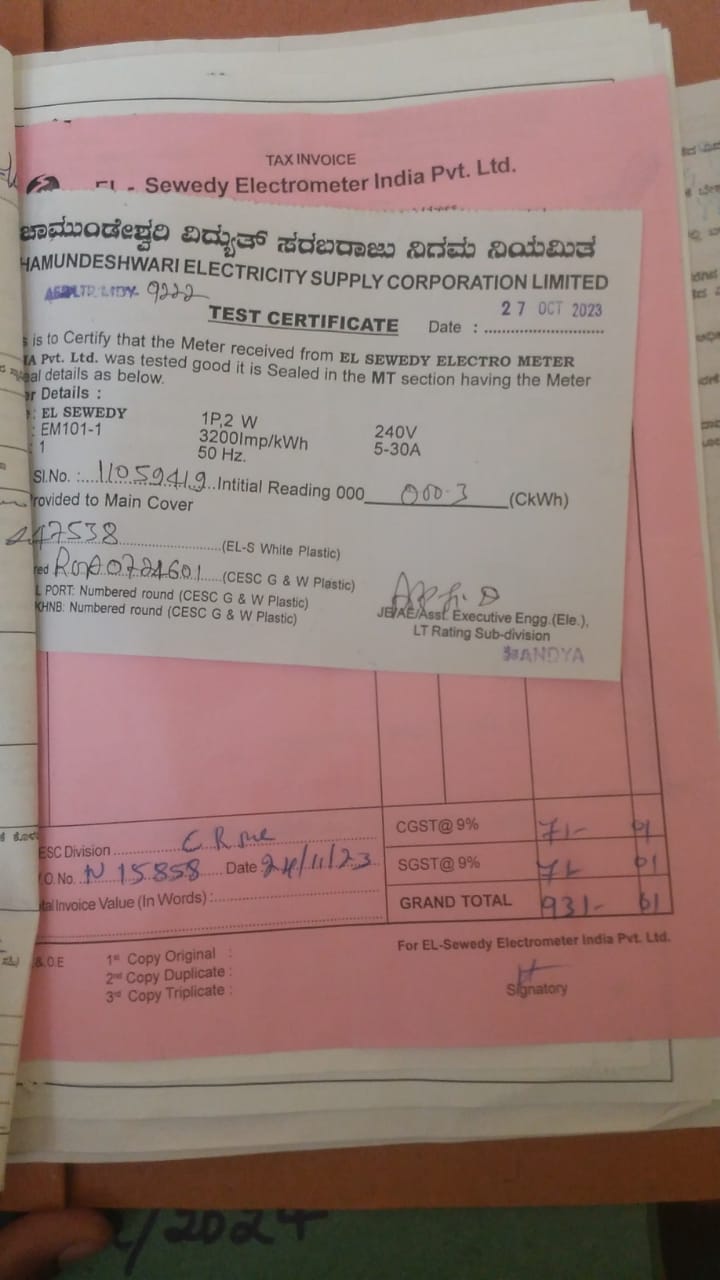 TAX INVOICE
EL - Sewedy Electrometer India Pvt. Ltd.
ಚಾಮುಂಡೇಶ್ವರಿ ವಿದ್ಯುತ್ ಸರಬರಾಜು ನಿಗಮ ನಿಯಮಿತ
HAMUNDESHWARI ELECTRICITY SUPPLY CORPORATION LIMITED
9222
27 OCT 2023
TEST CERTIFICATE Date :
s is to Certify that the Meter received from EL SEWEDY ELECTRO METER
IA Pvt. Ltd. was tested good it is Sealed in the MT section having the Meter
al details as below.
er Details :
: EL SEWEDY 1P,2 W 240V
: EM101-1 3200Imp/kWh 5-30A
: 1 50 Hz.
Sl.No. : 11059419 Intitial Reading 000 000.3 (CkWh)
rovided to Main Cover
247538 (EL-S White Plastic)
red 0724601 (CESC G & W Plastic)
L PORT: Numbered round (CESC G & W Plastic)
KHNB: Numbered round (CESC G & W Plastic)
JE/AE/Asst. Executive Engg.(Ele.),
LT Rating Sub-division
MANDYA
ESC Division
.O. No. N 15858 Date 24/11/23
tal Invoice Value (In Words) :
CGST@ 9% 71- 01
SGST@ 9% 71- 01
GRAND TOTAL 931- 01
& O.E
1st Copy Original :
2nd Copy Duplicate :
3rd Copy Triplicate :
For EL-Sewedy Electrometer India Pvt. Ltd.
Signatory
/2024